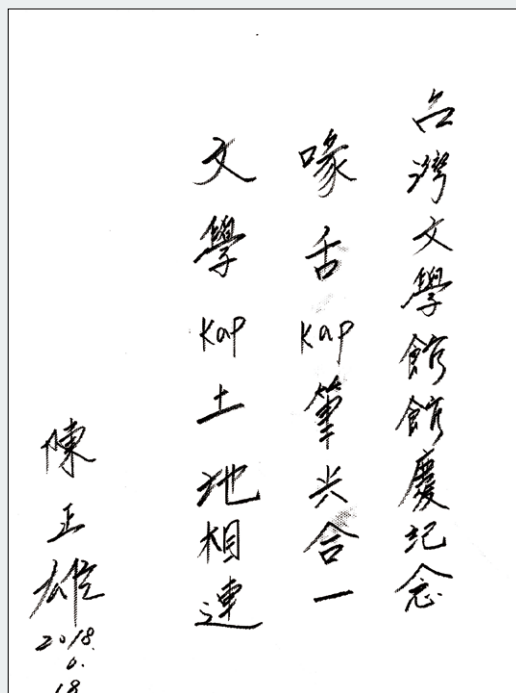 台灣文學館館慶記念
喙舌kap筆尖合一
文學kap土地相連
陳正雄
2018.
18